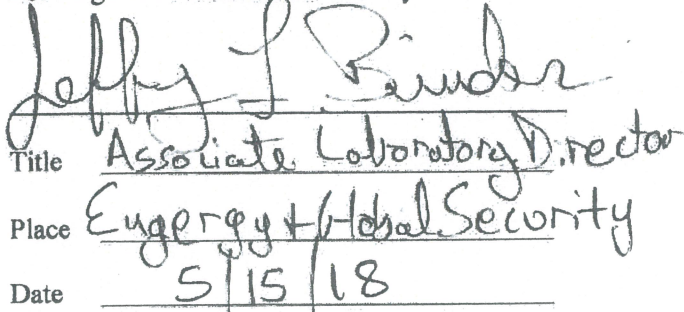 Jeffry L Binder
Title Associate Laboratory Director
Place Eugergy + Global Security
Date 5/15/18